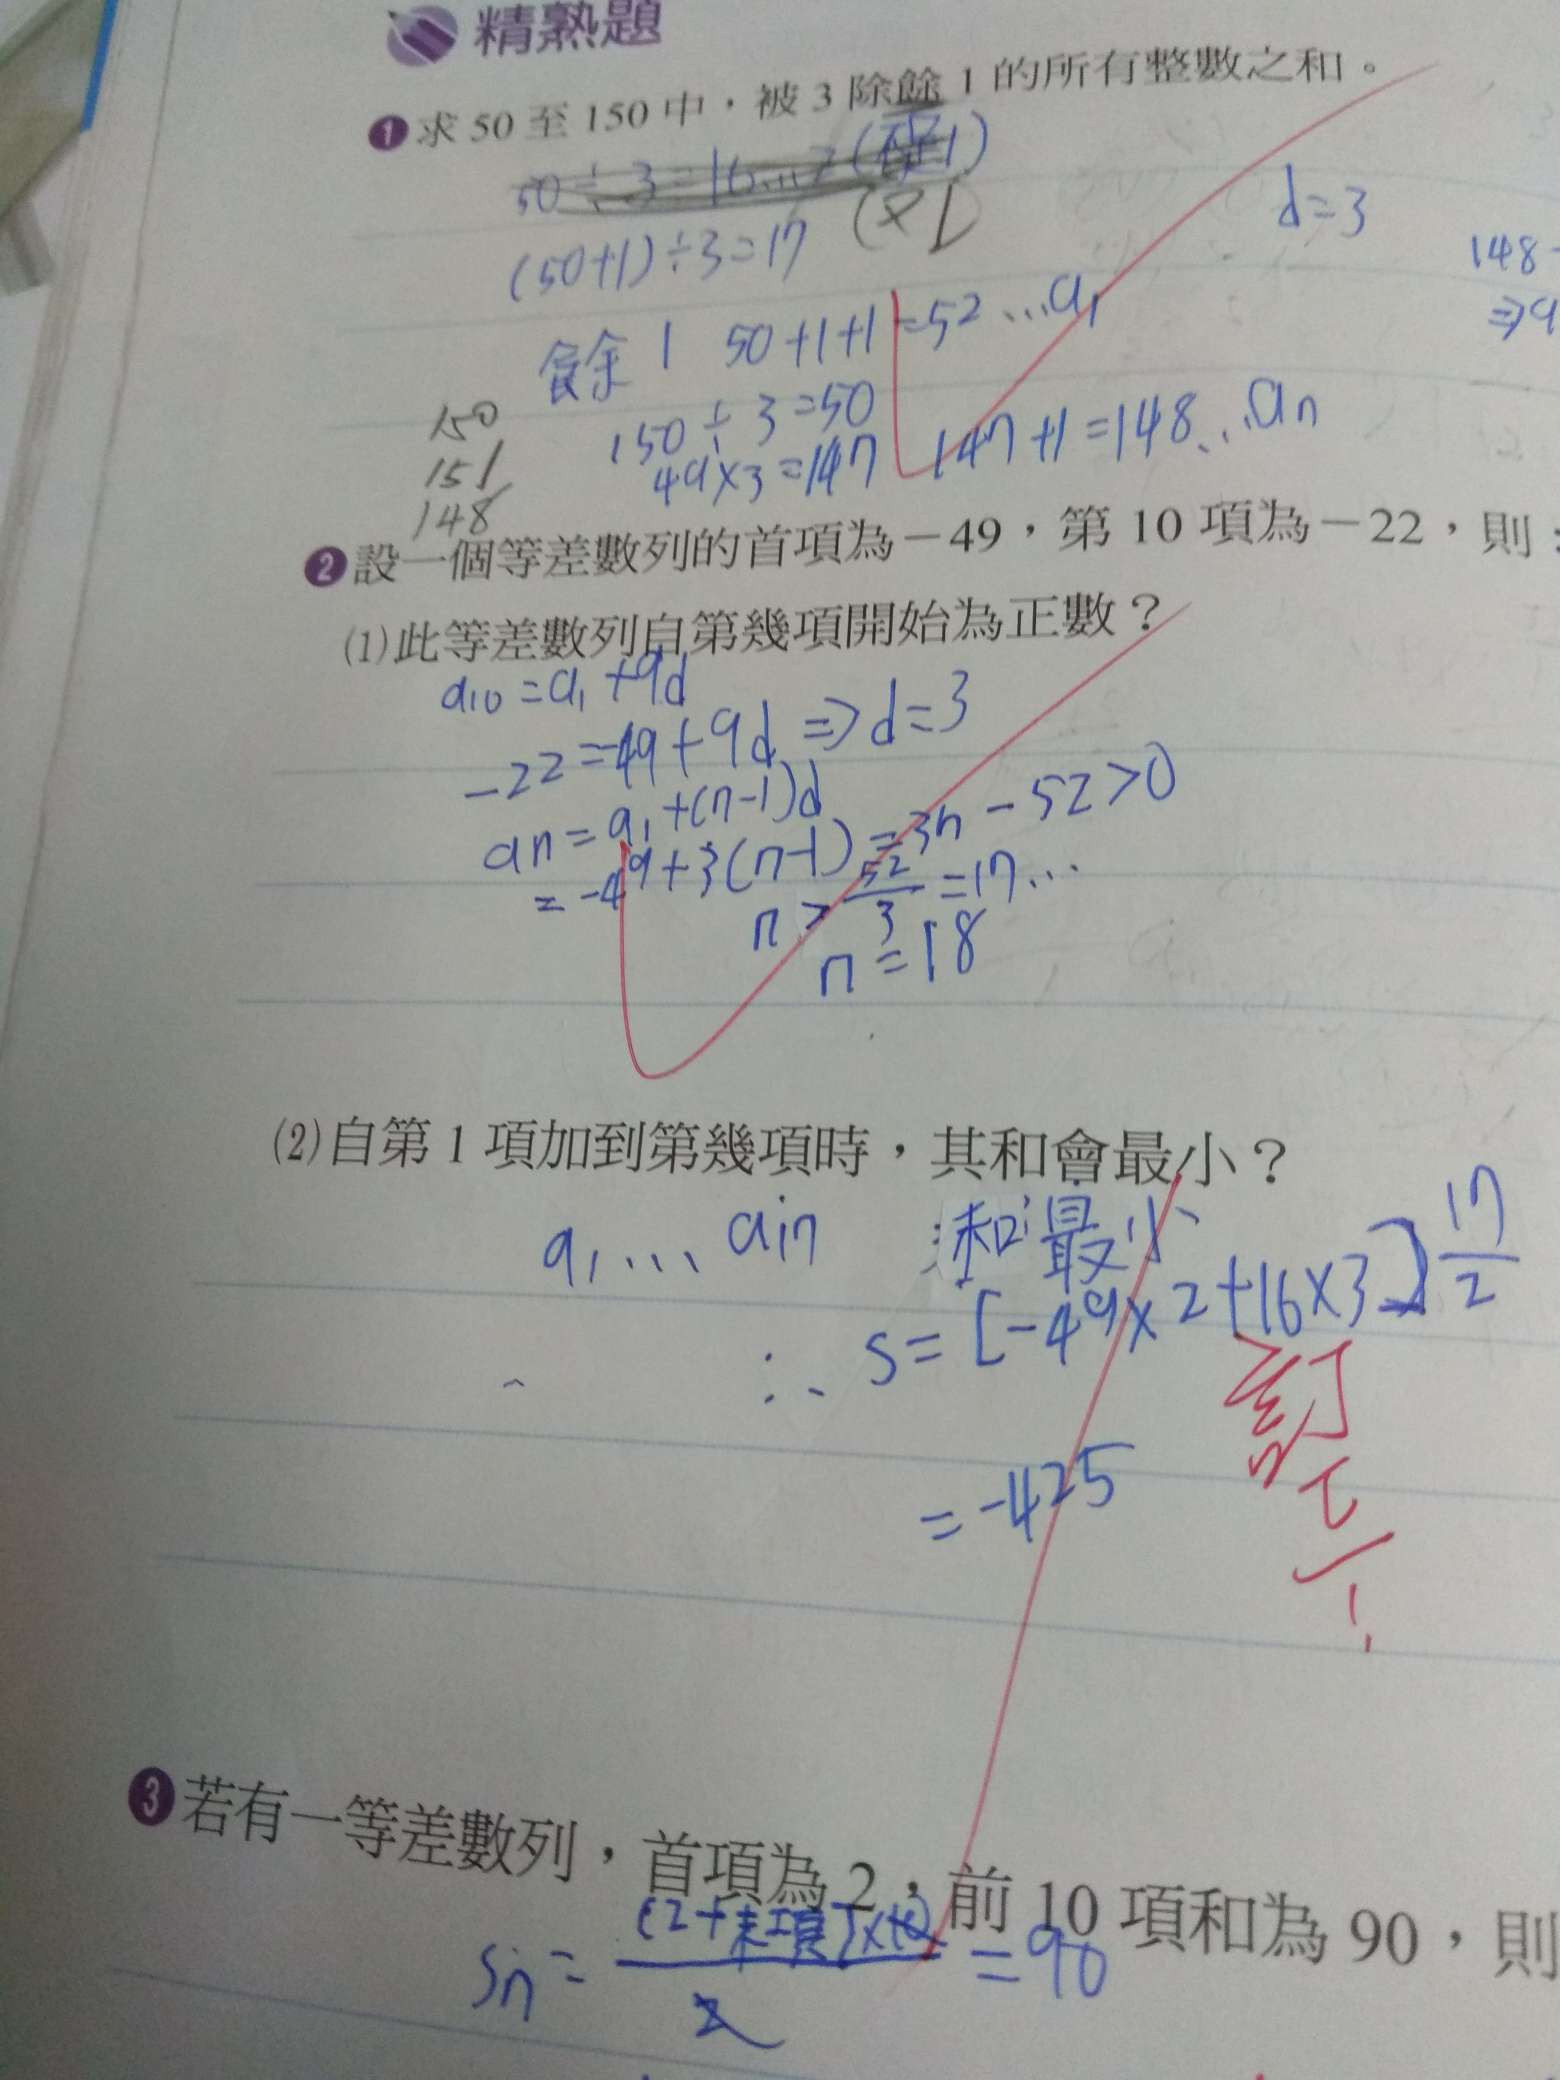 精熟題
❶求 50 至 150 中，被 3 除餘 1 的所有整數之和。
50÷3=16...2
(50+1)÷3=17
d=3
148-
餘 1 50+1+1=52...a₁
⇒a
150÷3=50
49×3=147 147+1=148...an
150
151
148
❷設一個等差數列的首項為－49，第 10 項為－22，則：
⑴此等差數列自第幾項開始為正數？
a₁₀=a₁+9d
-22=-49+9d⇒d=3
an=a₁+(n-1)d
=-49+3(n-1)=3n-52>0
n>52/3=17...
n=18
⑵自第 1 項加到第幾項時，其和會最小？
a₁...a₁₇ 和最小
∴S=[-49×2+16×3]17/2
=-425
訂正
❸若有一等差數列，首項為 2，前 10 項和為 90，則
Sn=(2+末項)×10/2=90